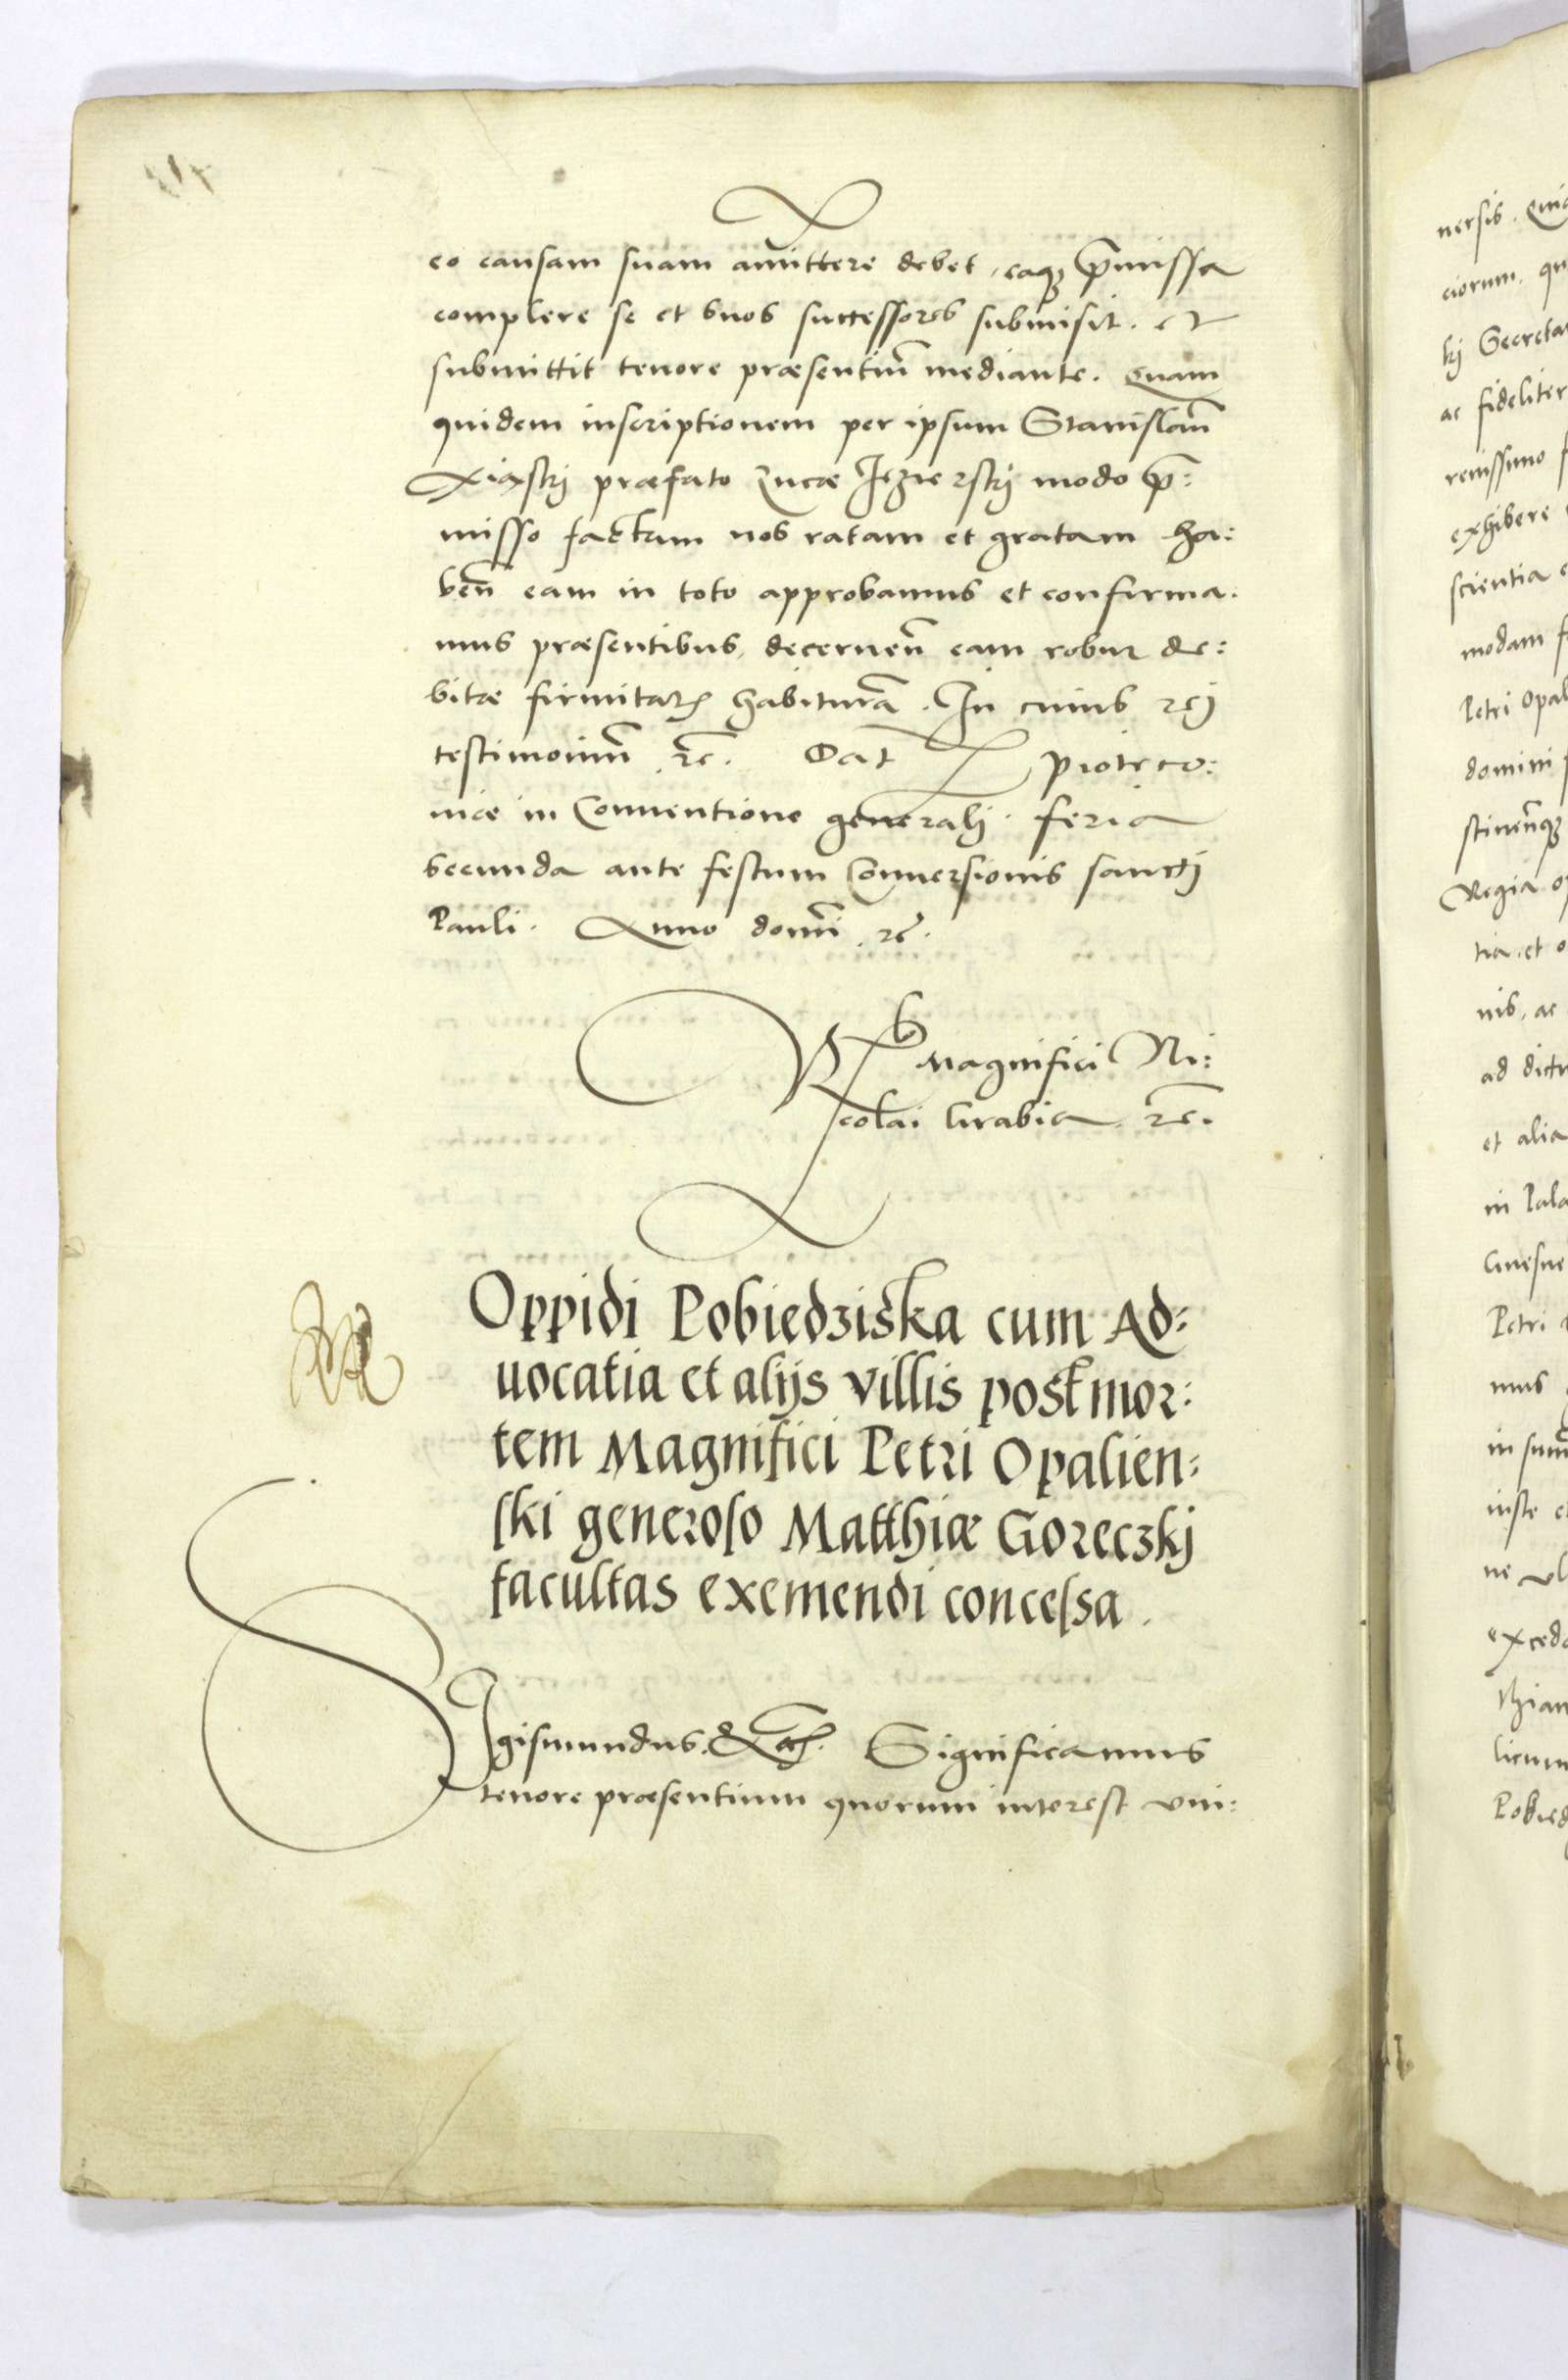 eo causam suam amittere debet, eaq₃ p̄missa
complere se et suos successores submisit. et
submittit tenore præsentiū mediante. Quam
quidem inscriptionem per ipsum Stanislaū
præfato Lucæ Jezierskj modo p̄:
misso factam nos ratam et gratam ha:
beñ eam in toto approbamus et confirma.
mus præsentibus, decerneñ eam robur de:
bitæ firmitatis habiturā. In cuius rej
testimoniū ꝛc̄. Dat Pioterco:
uiæ in Conuentione generalj. feria
secunda ante festum Conuersionis sanctj
Pauli. Anno domī ꝛc̄.
Magnifici Ni:
colai Grabia ꝛc̄.
Oppidi Pobiedziska cum Ad:
uocatia et alijs villis post mor:
tem Magnifici Petri Opalien:
ski generoso Matthiæ Goreczkj
facultas exemendi concessa.
Sigismundus. &c. Significamus
tenore præsentium quorum interest vni:
nersis. Qui
ciorum. qu
kj Secreta
ac fideliter
renissimo f
exhibere
scientia
modam f
Petri Opal
domini p
stinenq₃
Regia
tia. et o
nis, ac
ad dict
et alia
in Pala
Gnesne
Petri
mus
in sum̄
iuste
ne vl
exceda
thiam
licum
Pobied